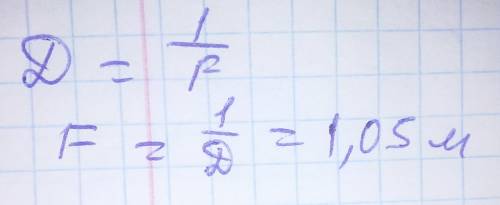 D = 1/F
F = 1/D = 1,05 м